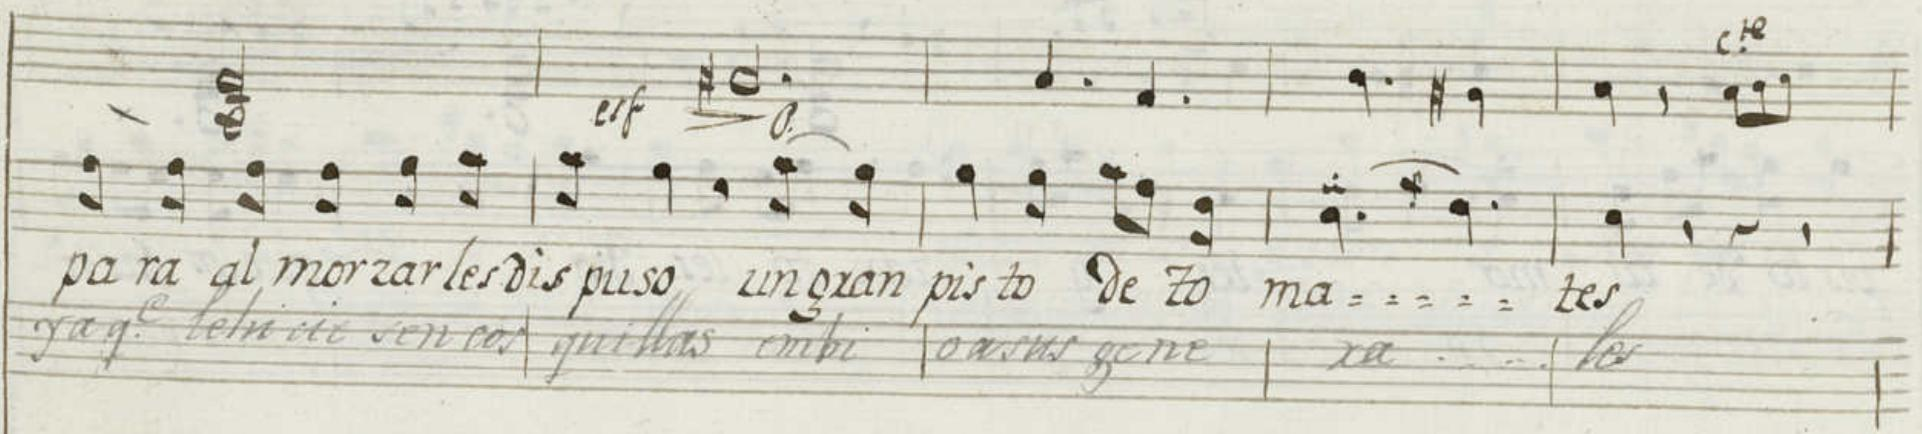 cte
esf p.
para al morzar les dis puso un gran pis to de to ma = = = = = tes
ya q.e le hi cie sen cos quillas embi o a sus gene ra - - - - les